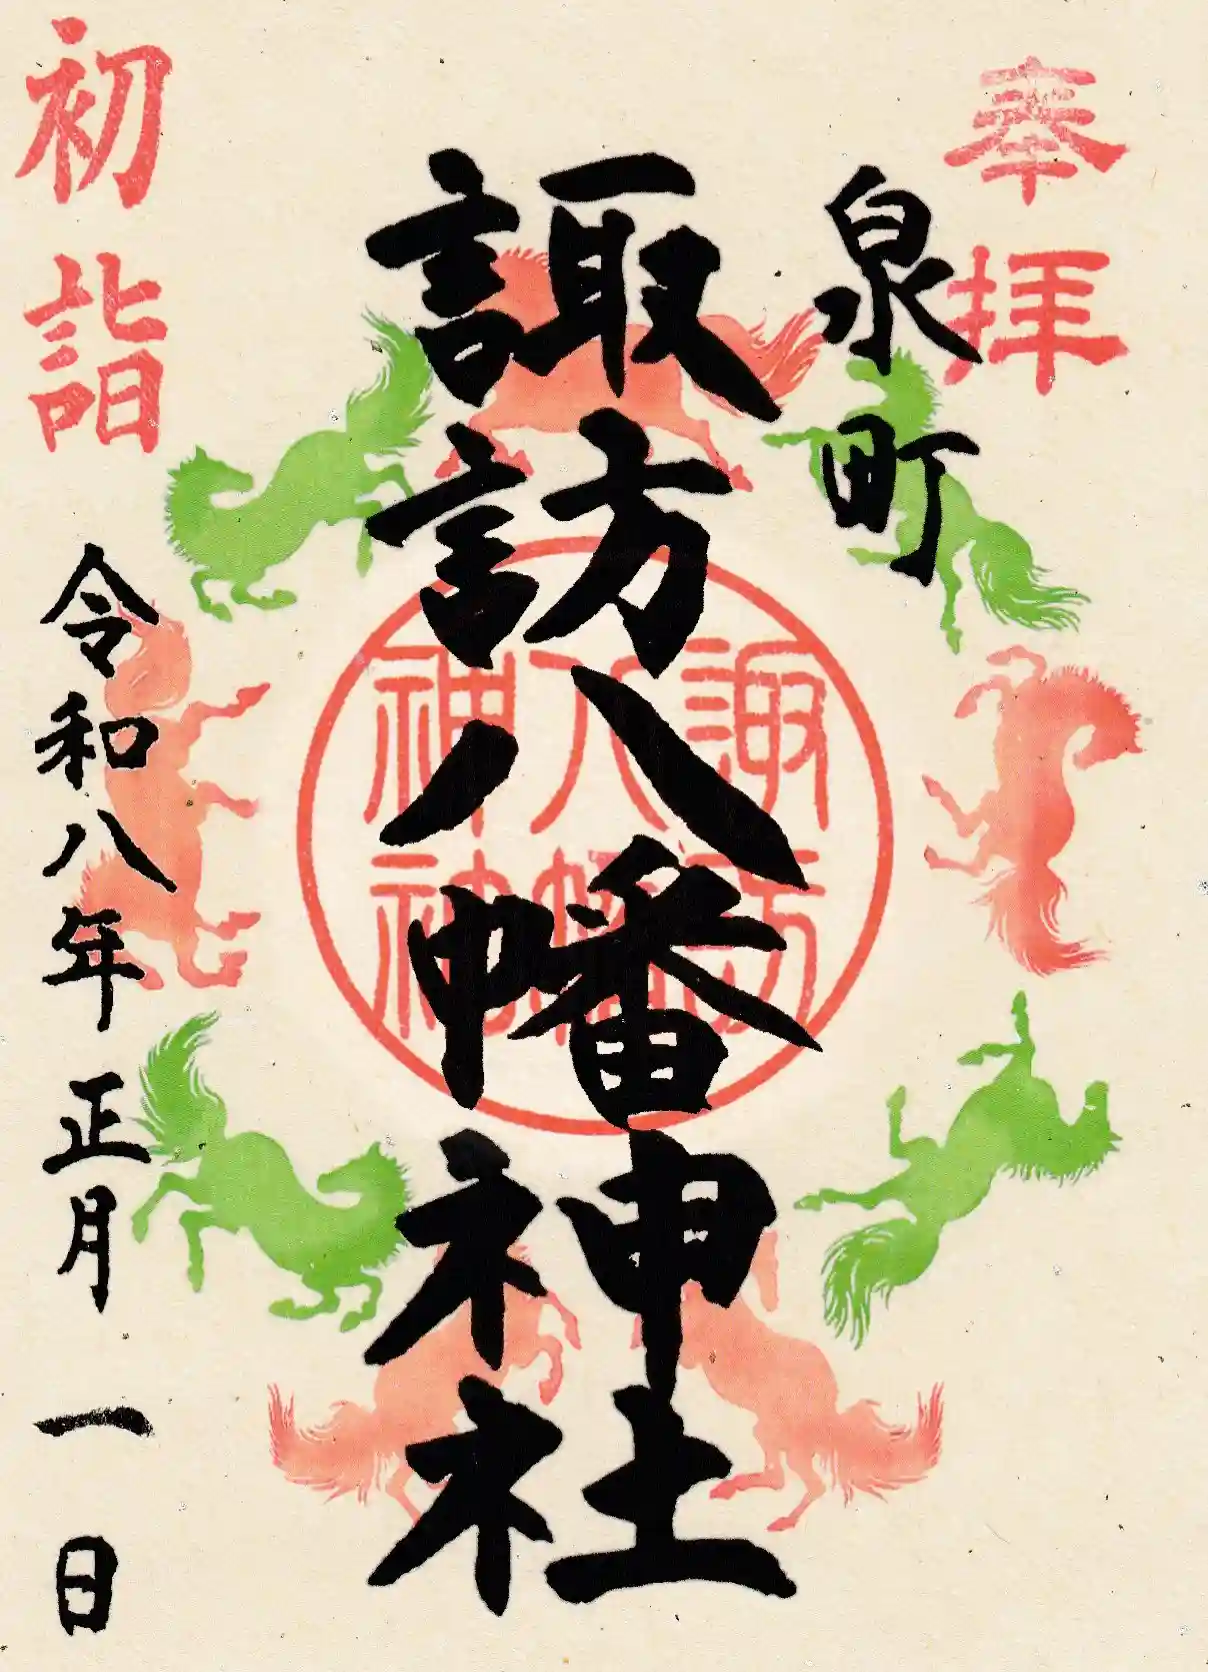 奉拝
泉町
諏訪八幡神社
諏訪
八幡
神社
初詣
令和八年正月一日